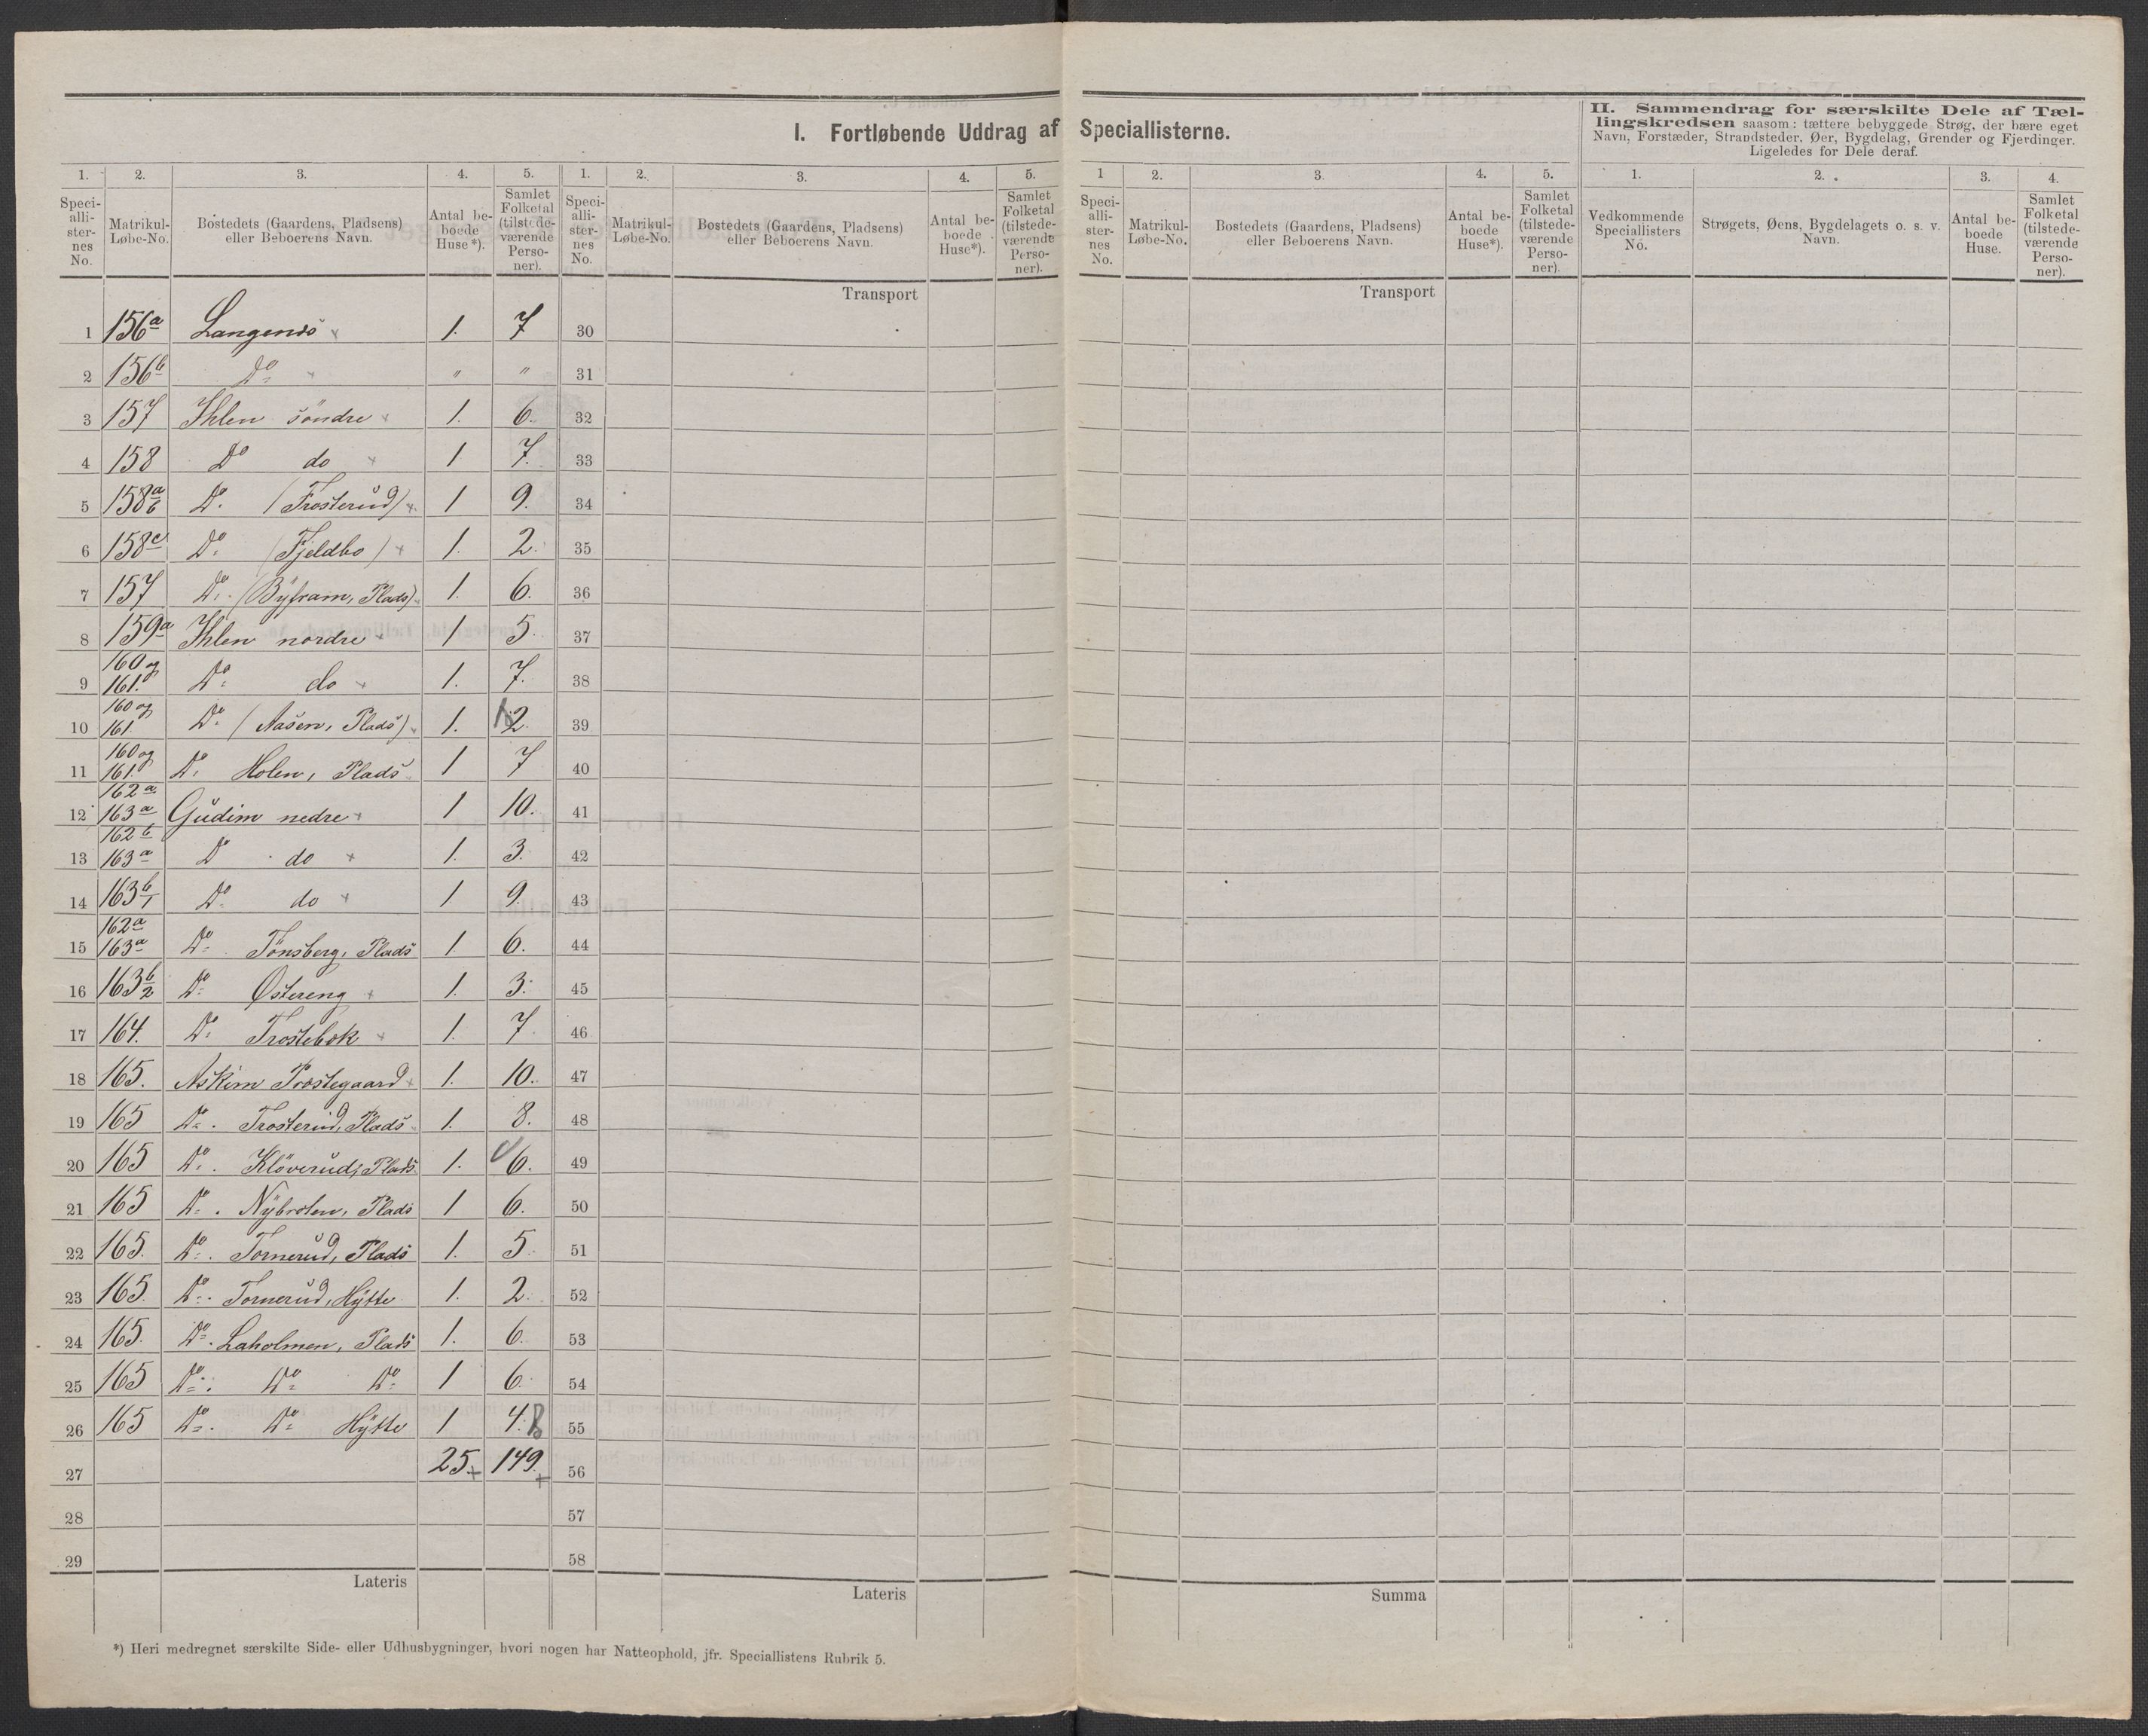 I. Fortløbende Uddrag af Speciallisterne.
II. Sammendrag for særskilte Dele af Tællingskredsen saasom: tættere bebyggede Strøg, der bære eget
Navn, Forstæder, Strandsteder, Øer, Bygdelag, Grender og Fjerdinger.
Ligeledes for Dele deraf.
1. 2. 3. 4. 5. 1. 2. 3. 4. 5. 1 2. 3. 4. 5. 1. 2. 3. 4.
Speciallisternes No. Matrikul-Løbe-No. Bostedets (Gaardens, Pladsens) eller Beboerens Navn. Antal beboede Huse*). Samlet Folketal (tilstedeværende Personer).
Speciallisternes No. Matrikul-Løbe-No. Bostedets (Gaardens, Pladsens) eller Beboerens Navn. Antal beboede Huse*). Samlet Folketal (tilstedeværende Personer).
Speciallisternes No. Matrikul-Løbe-No. Bostedets (Gaardens, Pladsens) eller Beboerens Navn. Antal beboede Huse*). Samlet Folketal (tilstedeværende Personer).
Vedkommende Speciallisters No. Strøgets, Øens, Bygdelagets o. s. v. Navn. Antal beboede Huse. Samlet Folketal (tilstedeværende Personer).
Transport Transport
1 156a Langenæs 1. 7 30
2 156b Do " " 31
3 157 Ihlen söndre 1. 6. 32
4 158 Do do 1 7. 33
5 158a/b Do (Trosterud) 1 9. 34
6 158c Do (Fjeldbo) 1. 2. 35
7 157 Do (Byfram, Plads) 1. 6. 36
8 159a Ihlen nordre 1 5. 37
9 160 og 161. Do do 1. 7. 38
10 160 og 161 Do (Aasen, Plads) 1. 2. 39
11 160 og 161. Do Holen, Plads 1 7 40
12 162a 163a Gudim nedre 1 10. 41
13 162b 163a D do 1. 3. 42
14 163b/1 Do do 1 9. 43
15 162a 163a Do Tönsberg, Plads 1 6. 44
16 163b/2 Do Østereng 1. 3. 45
17 164. Do Trostebøk 1. 7. 46
18 165. Askim Præstegaard 1. 10. 47
19 165 Do. Trosterud, Plads 1. 8. 48
20 165 Do. Klöverud, Plads 1. 6. 49
21 165 Do. Nybroten, Plads 1 6. 50
22 165. Do. Tornerud, Plads 1. 5. 51
23 165. Do. Tornerud, Hytte 1. 2. 52
24 165. Do. Laholmen, Plads 1. 6. 53
25 165 Do. Do Do 1 6. 54
26 165 Do. Do Hytte 1 4. 55
27 25 149. 56
28 57
29 58
Lateris Lateris Summa
*) Heri medregnet særskilte Side- eller Udhusbygninger, hvori nogen har Natteophold, jfr. Speciallistens Rubrik 5.